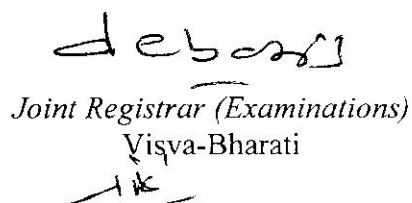 debasis
Joint Registrar (Examinations)
Visva-Bharati